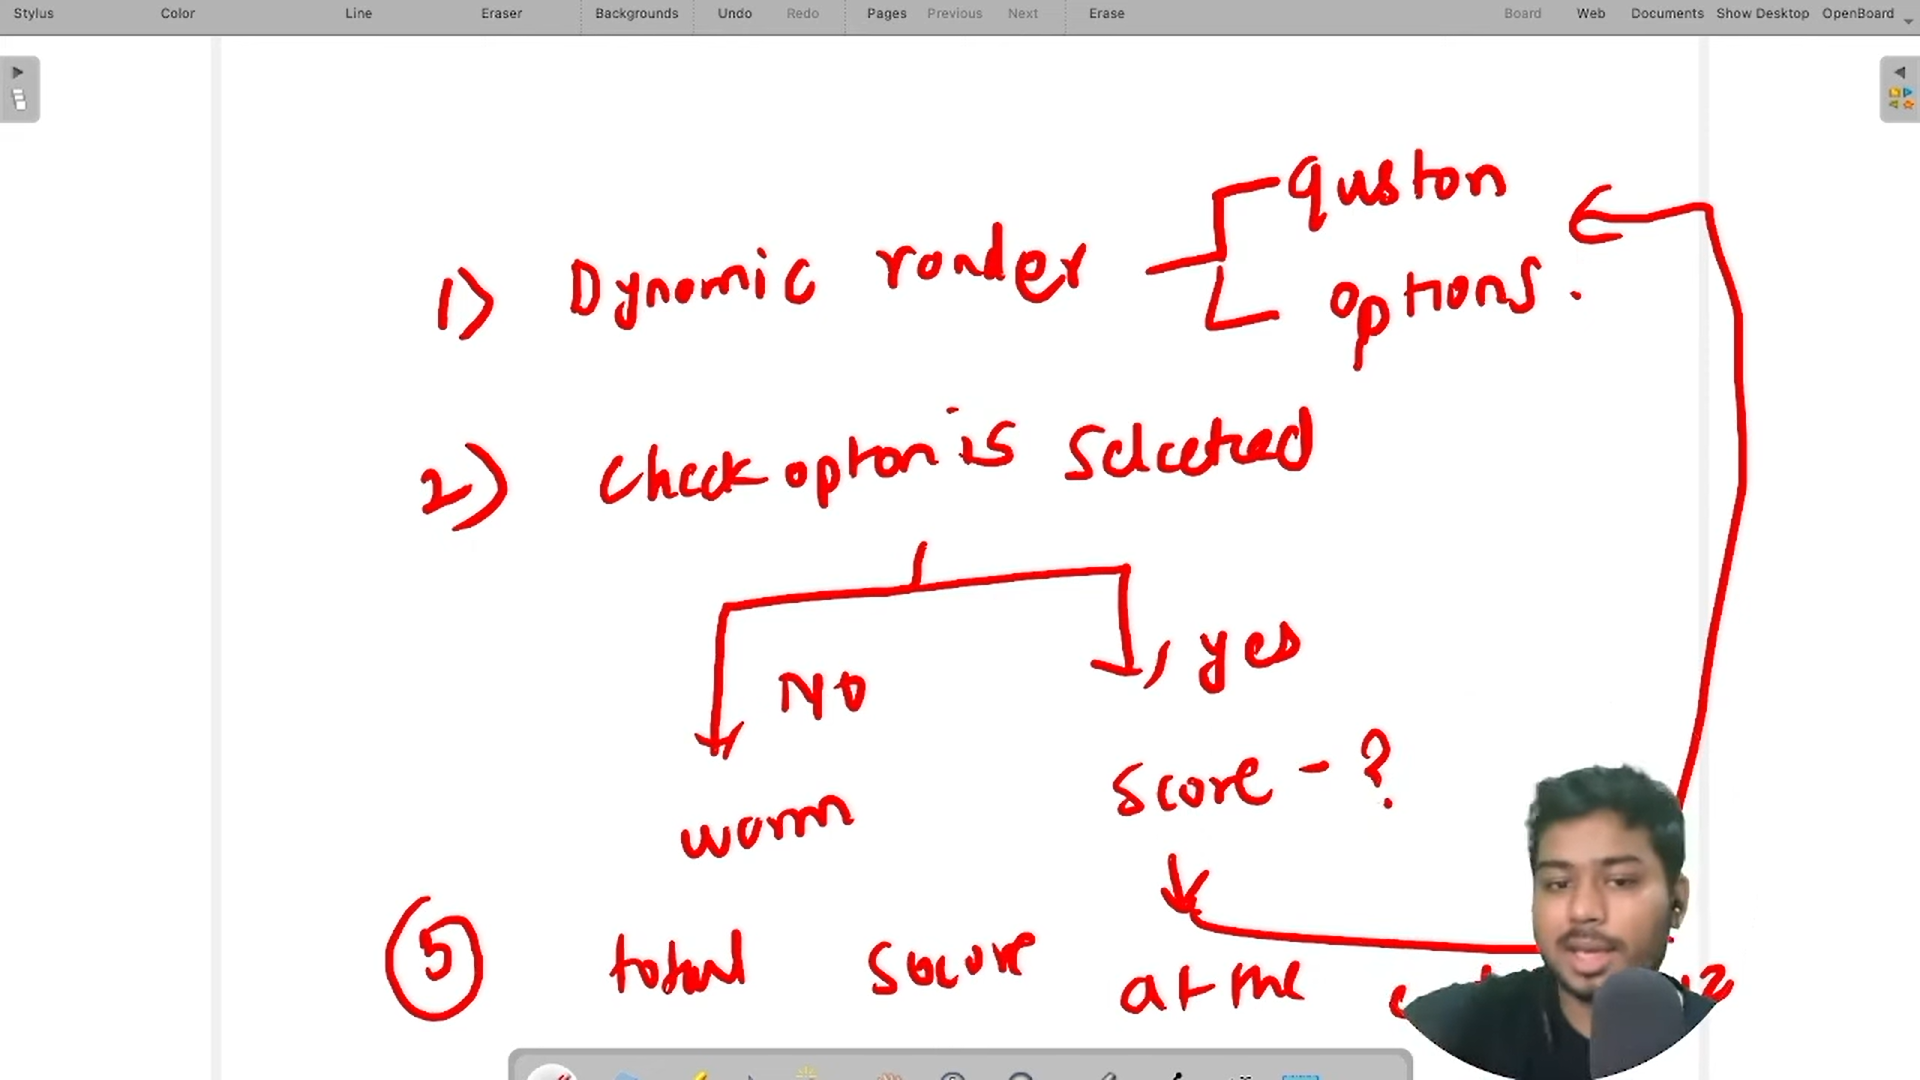 Stylus Color Line Eraser Backgrounds Undo Redo Pages Previous Next Erase Board Web Documents Show Desktop OpenBoard
quston
1) Dynomic render
options.
2) Check opton is Selceted
NO
yes
Score - ?
worn
5 total Socore at the